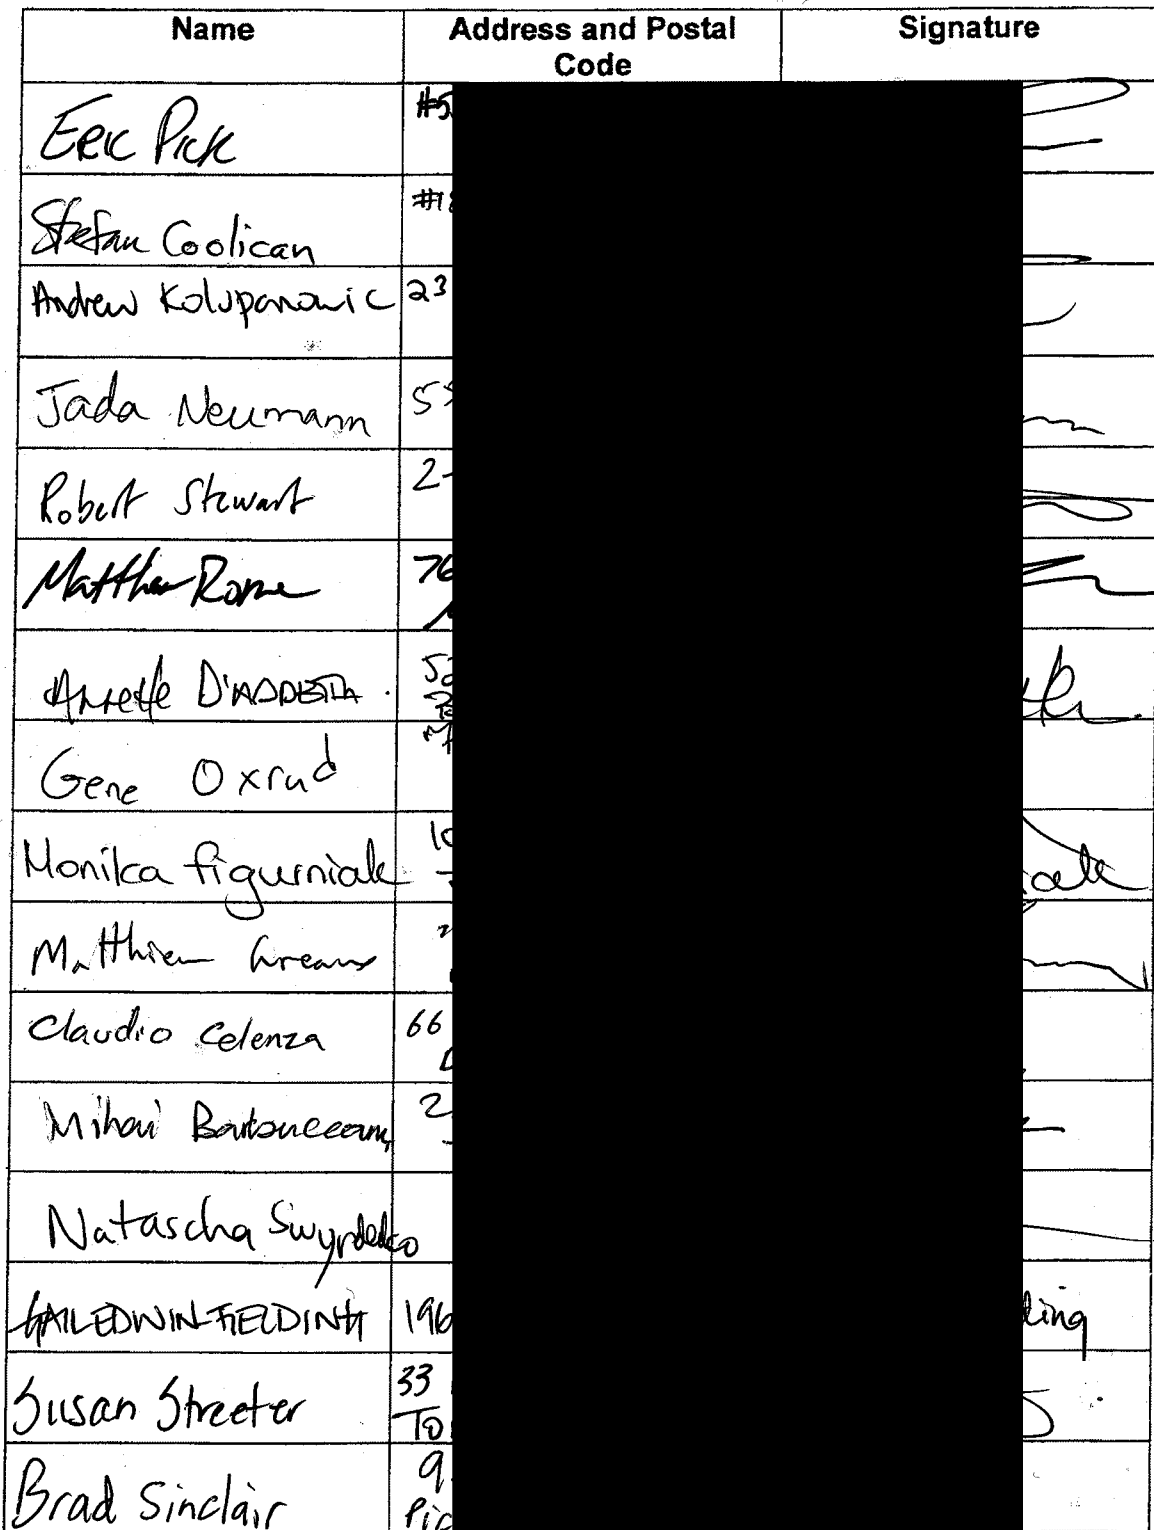 Name Address and Postal Code Signature
Eric Pick #5
Stefan Coolican #18
Andrew Kolupanowic 23
Jada Neumann 55
Robert Stewart 2-
Matthew Rome 76
Annette D'ADDETTA 52
Gene Oxrud
Monika figurniak 10
Matthieu
Claudio Celenza 66
Mihai 2
Natascha
GAIL EDWIN-FIELDING 196 ding
Susan Streeter 33
To
Brad Sinclair 9
Pic